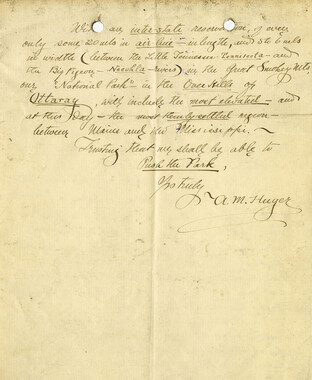 With an inter-state reservation, of even
only some 20 miles in air line in length, and 5 to 6 miles
in width (between the Little Tennessee and
the Big Pigeon river) in the Great Smoky Mts,
our "National Park" in the Over Hills of
"Ottaray", with include the most elevated and
at this day the most thinly settled region
between Maine and the Mississippi.
Trusting that we shall be able to
Push the Park,
Yrs truly
A. M. Huger